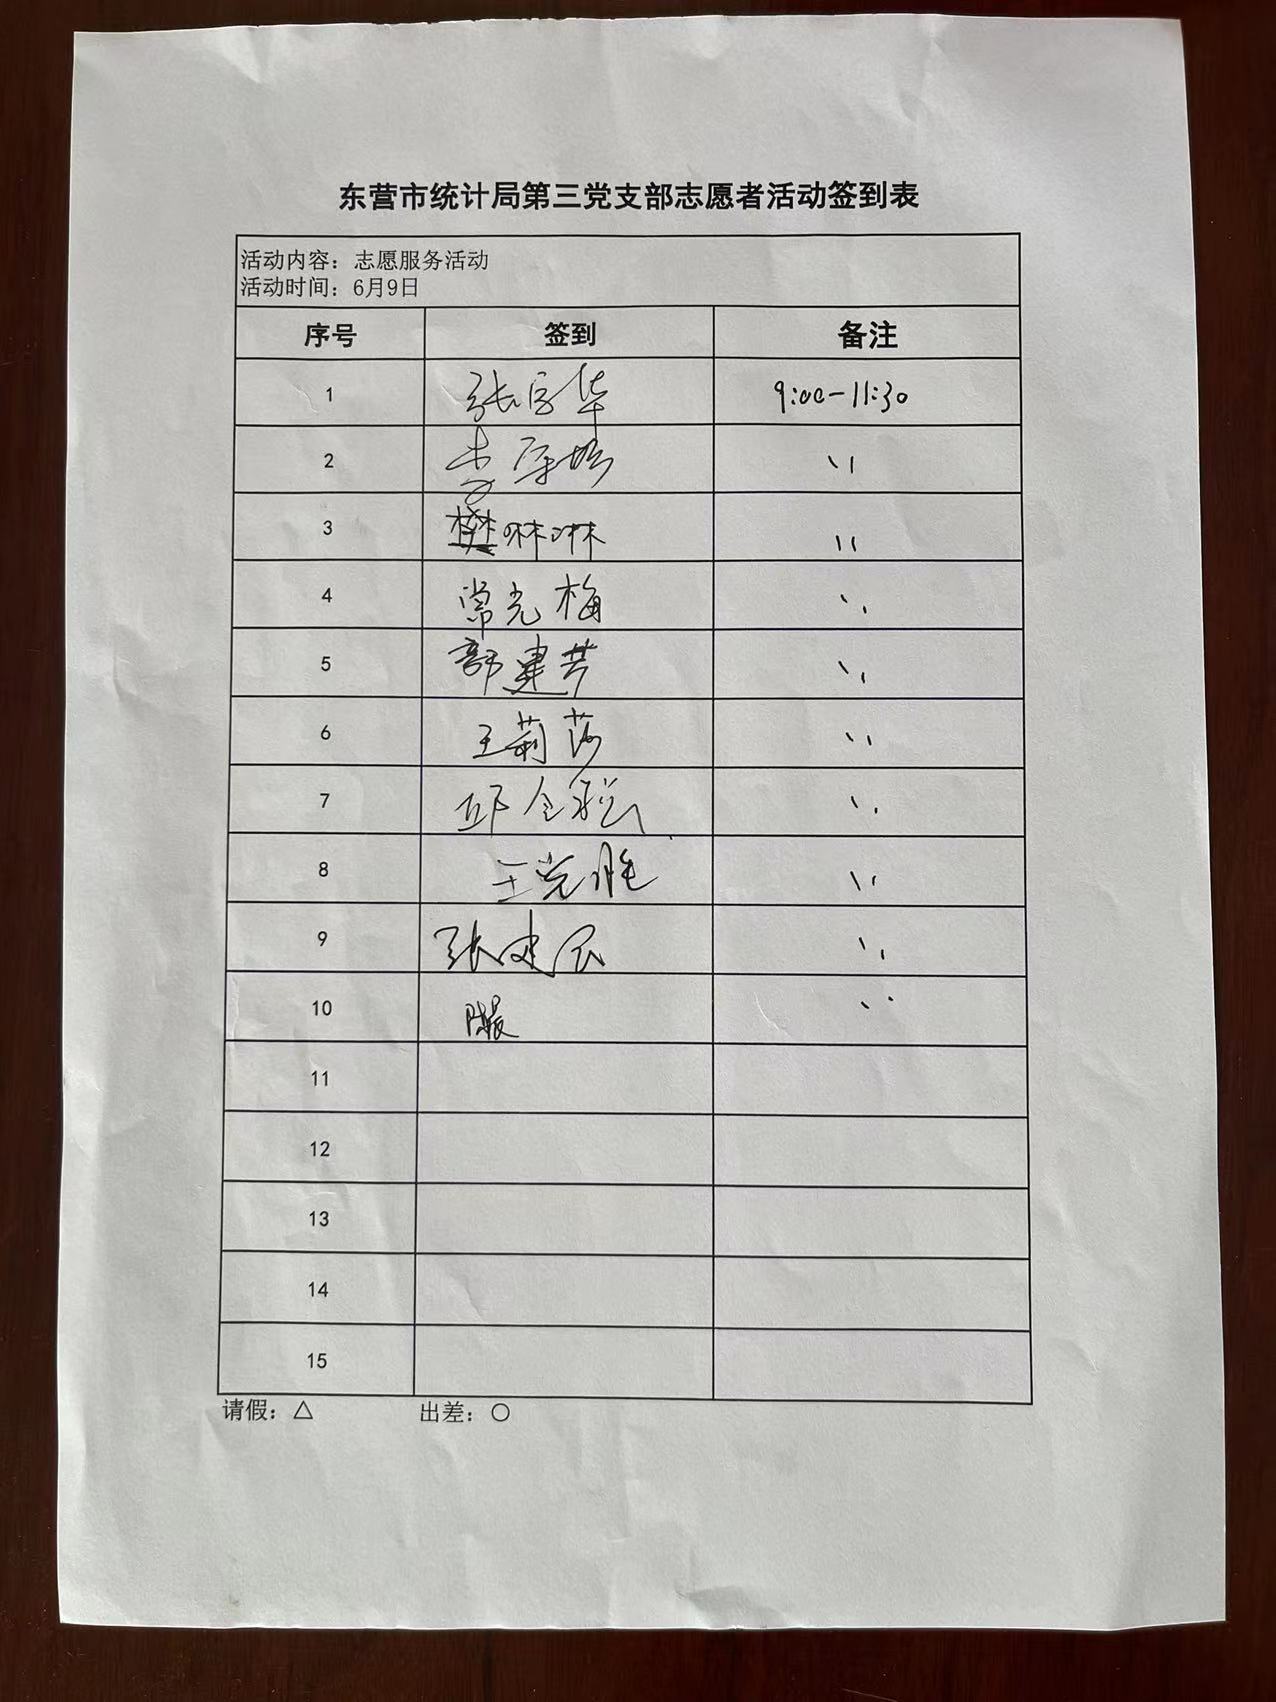 东营市统计局第三党支部志愿者活动签到表
活动内容：志愿服务活动
活动时间：6月9日
序号 签到 备注
1 张 华 9:00-11:30
2 李 〃
3 樊琳琳 〃
4 常光梅 〃
5 郭建芳 〃
6 王莉莎 〃
7 邱全 〃
8 王党胜 〃
9 张建民 〃
10 陈晨 〃
11
12
13
14
15
请假：△ 出差：○